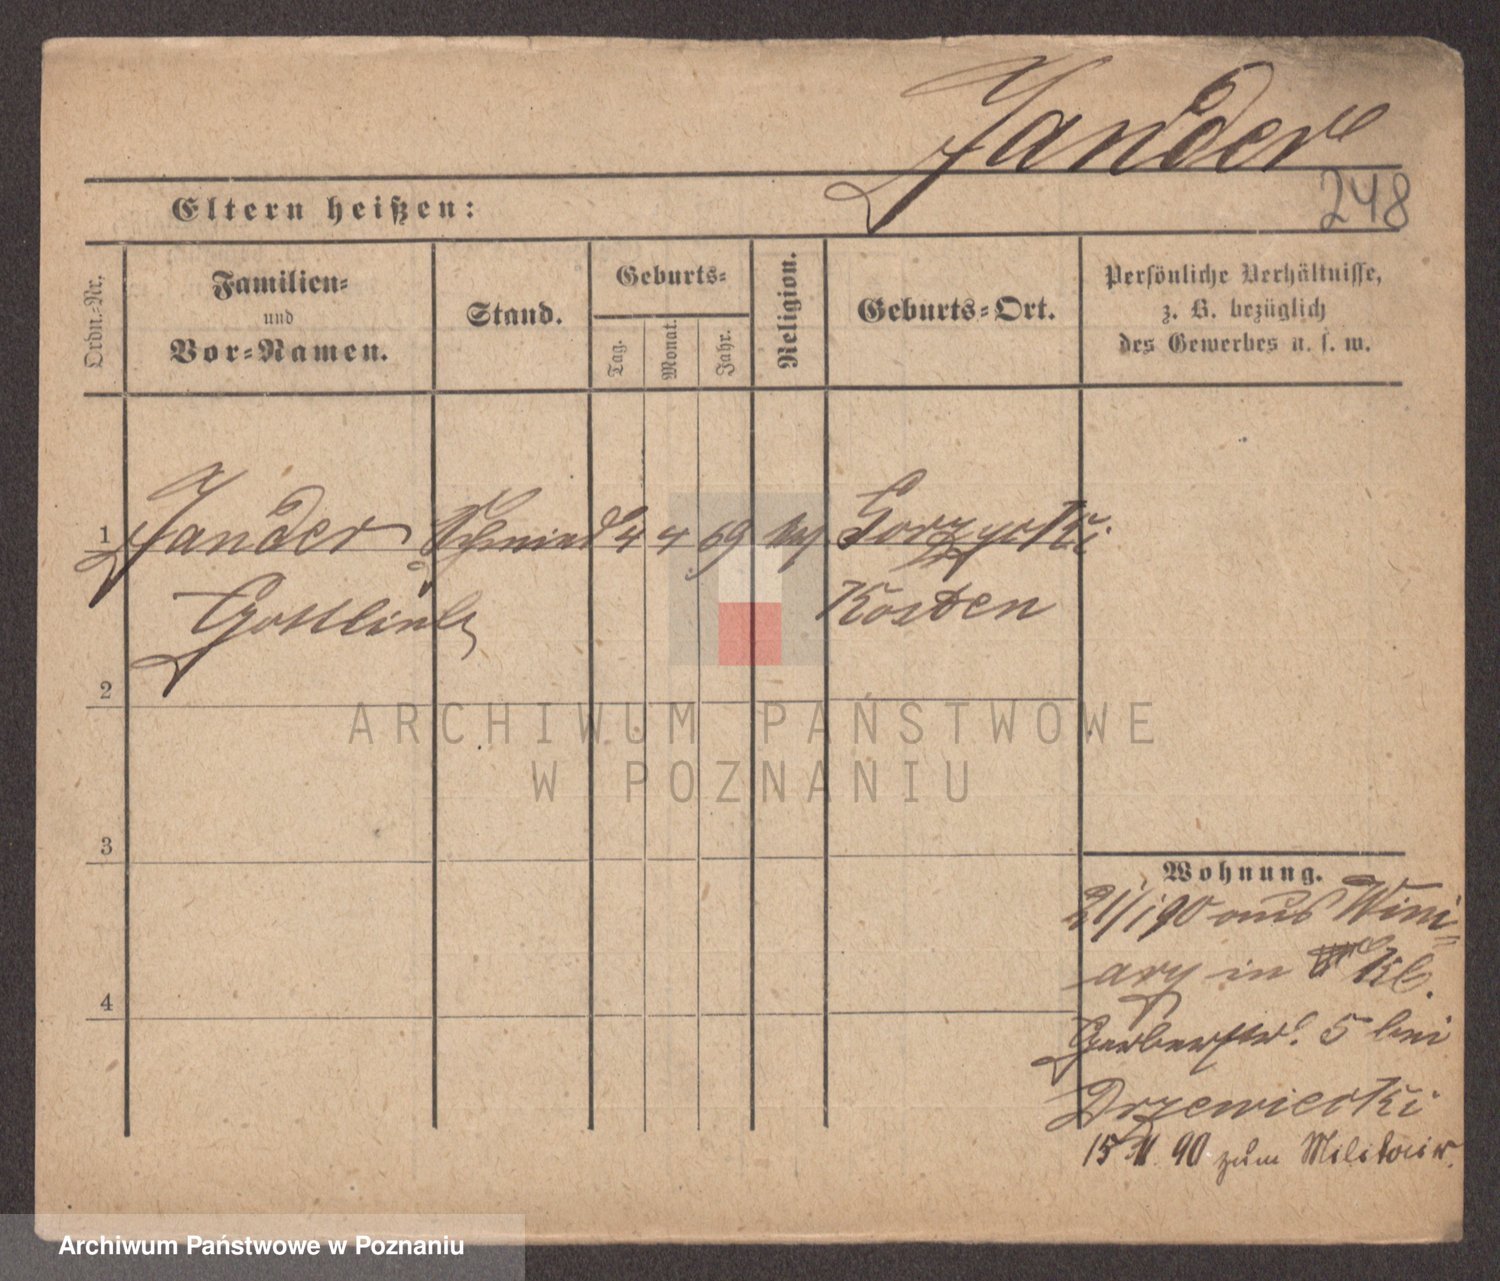 Jander
248
Eltern heißen:
Ordn.-Nr.
Familien-
und
Vor-Namen.
Stand.
Geburts-
Tag.
Monat.
Jahr.
Religion.
Geburts-Ort.
Persönliche Verhältnisse,
z. B. bezüglich
des Gewerbes u. s. w.
1 Jander Schmied 4 4 69
Gottlieb Kosten
2
3
4
Wohnung.
21/1 90 aus Wini-
ary in Kl.
Gerberstr. 5 bei
Drzewiecki
15 90 zum Militair.
ARCHIWUM PAŃSTWOWE
W POZNANIU
Archiwum Państwowe w Poznaniu